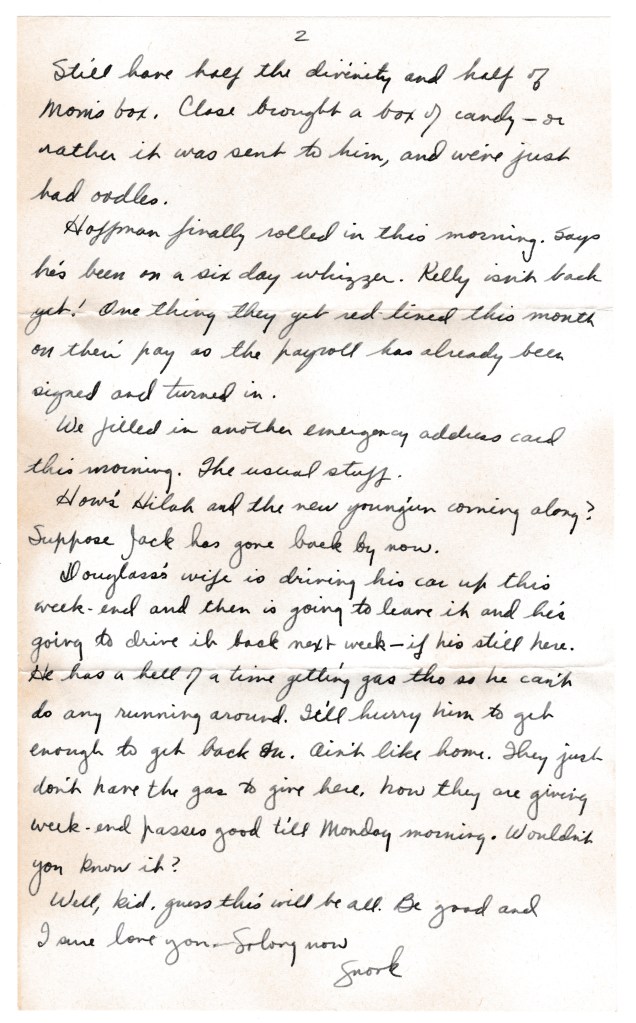 2
Still have half the divinity and half of
Mom's box. Close brought a box of candy — or
rather it was sent to him, and we've just
had oodles.
Hoffman finally rolled in this morning. Says
he's been on a six day whizzer. Kelly isn't back
yet! One thing they get red-lined this month
on their pay as the payroll has already been
signed and turned in.
We filled in another emergency address card
this morning. The usual stuff.
How's Hilah and the new young'un coming along?
Suppose Jack has gone back by now.
Douglass's wife is driving his car up this
week-end and then is going to leave it and he's
going to drive it back next week — if his still here.
He has a hell of a time getting gas tho so he can't
do any running around. It'll hurry him to get
enough to get back on. Ain't like home. They just
don't have the gas to give here. Now they are giving
week-end passes good till Monday morning. Wouldn't
you know it?
Well, kid, guess this will be all. Be good and
I sure love you — Solong now
Snork